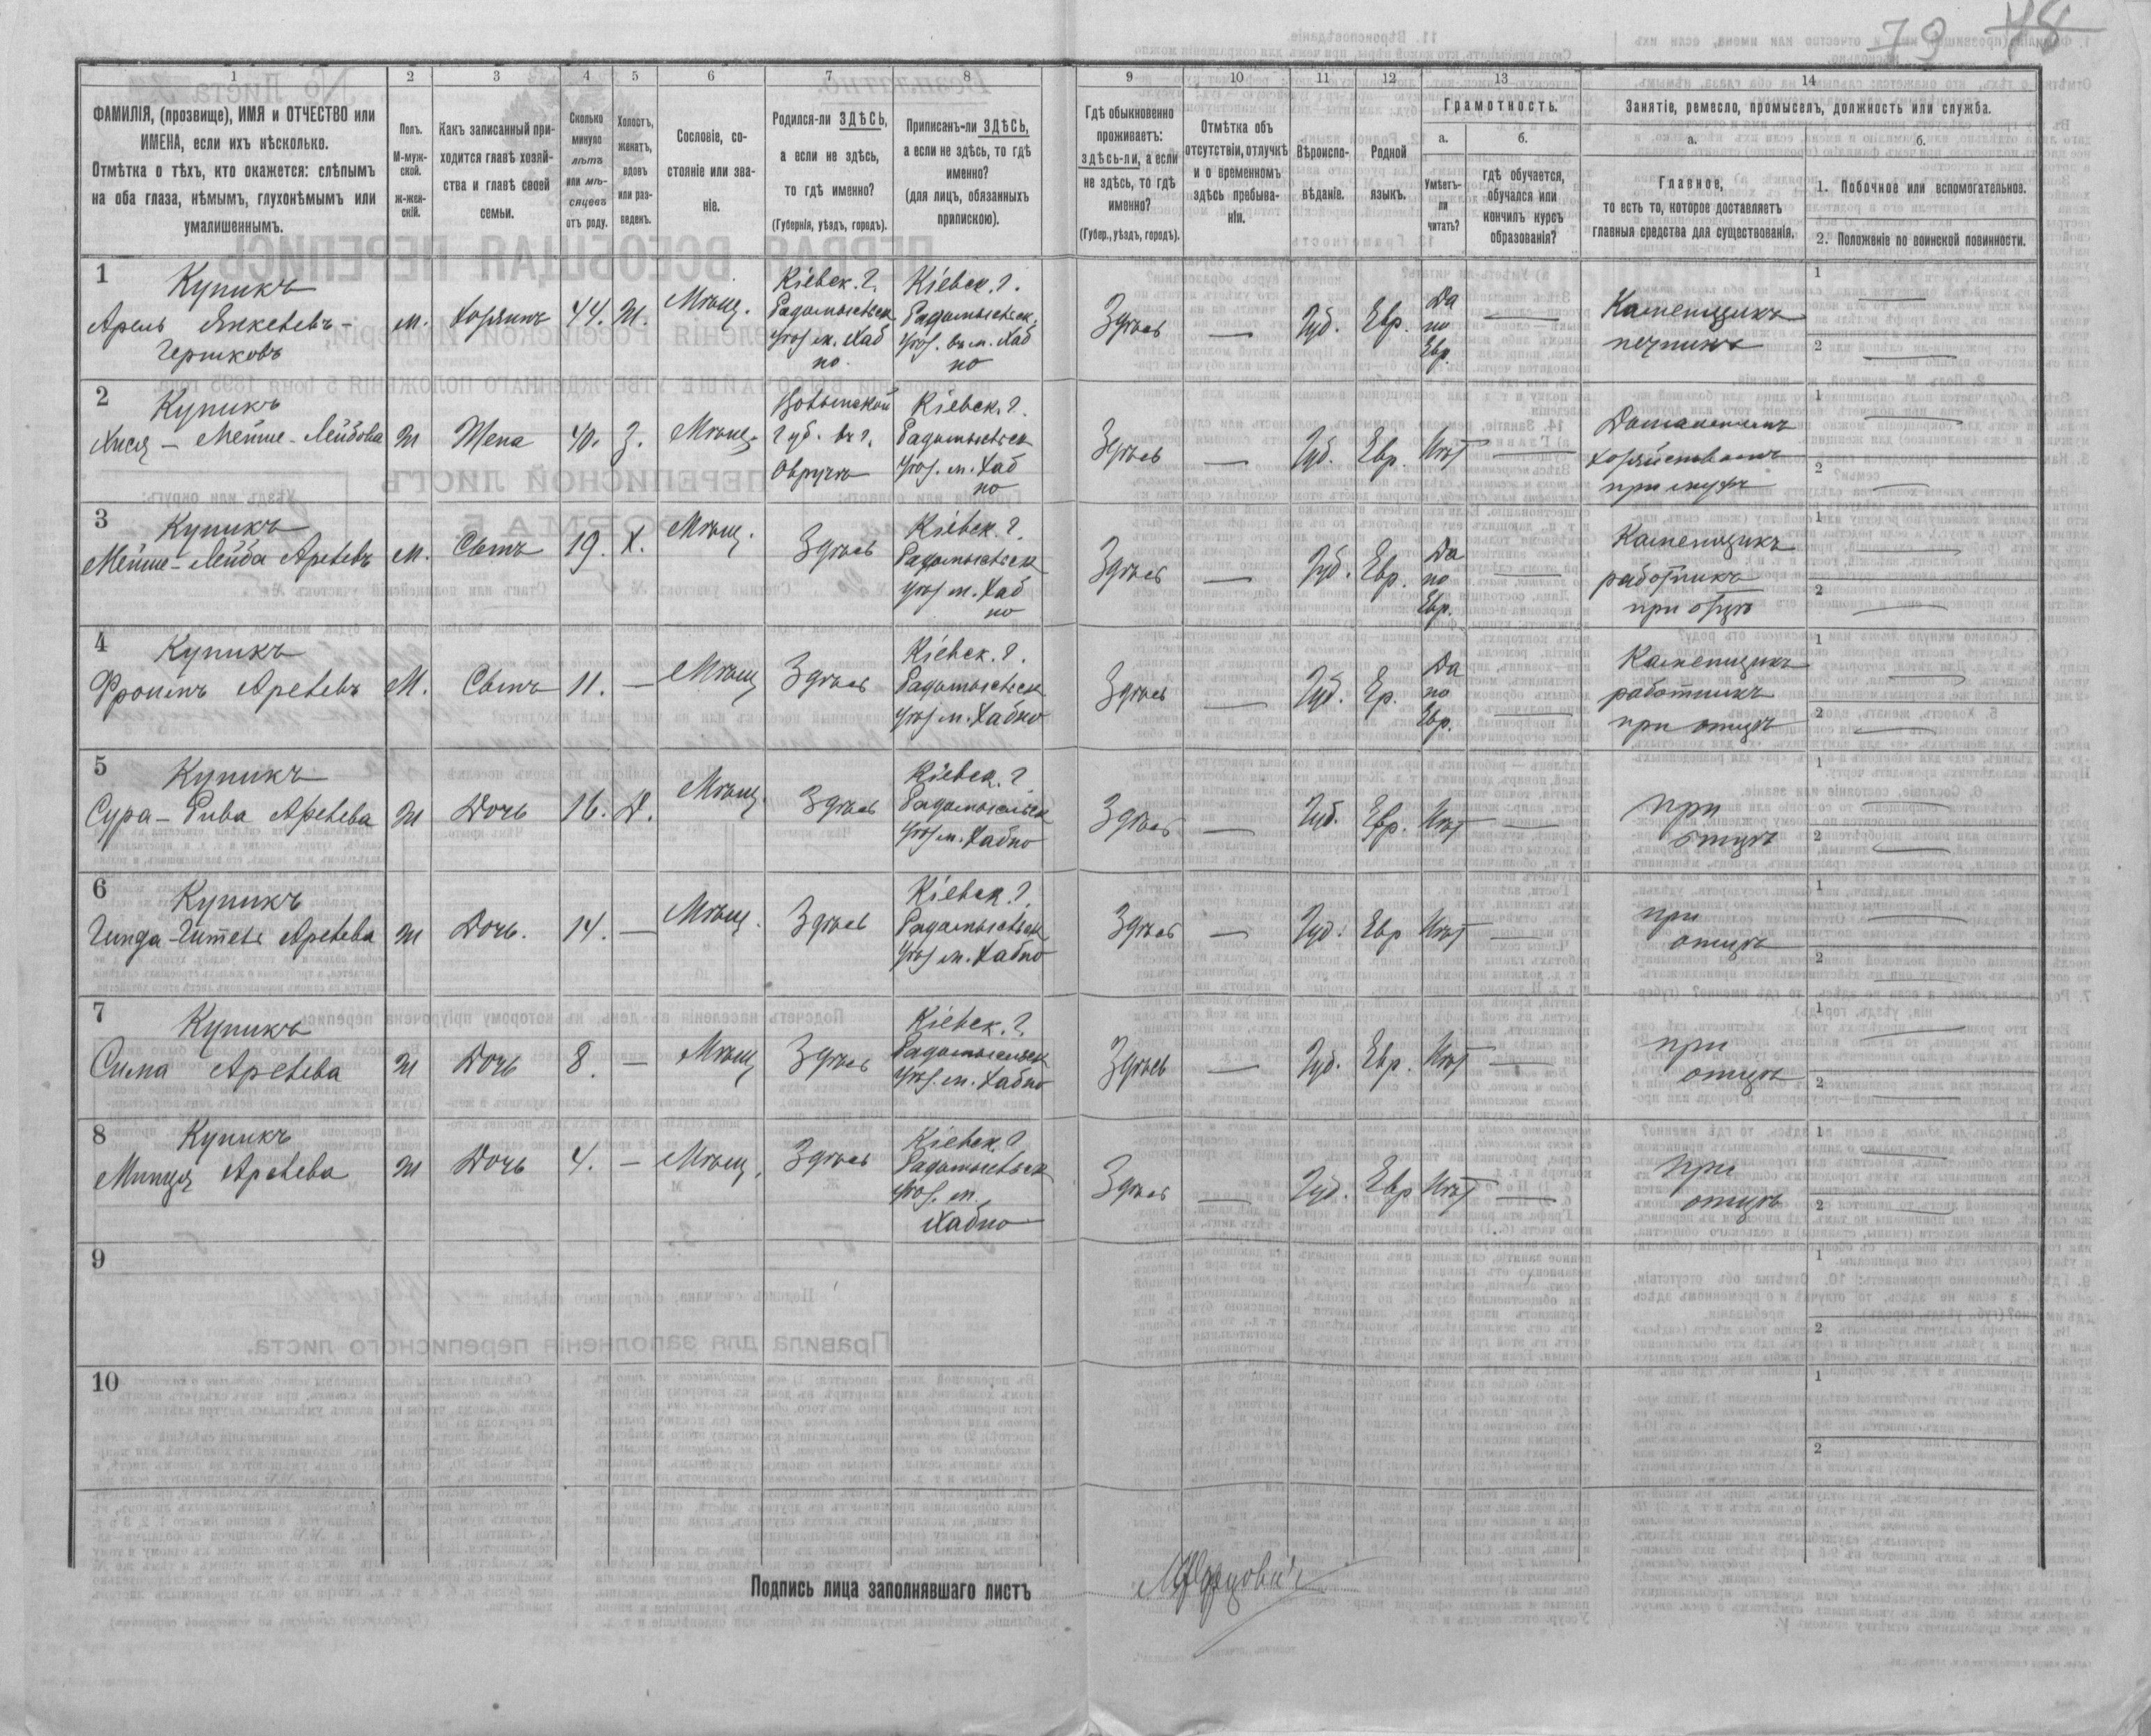 79 78
1 2 3 4 5 6 7 8 9 10 11 12 13 14
ФАМИЛІЯ, (прозвище), ИМЯ и ОТЧЕСТВО или
ИМЕНА, если ихъ нѣсколько.
Отмѣтка о тѣхъ, кто окажется: слѣпымъ
на оба глаза, нѣмымъ, глухонѣмымъ или
умалишеннымъ.
Полъ.
М-муж-
ской.
ж-жен-
скій.
Какъ записанный при-
ходится главѣ хозяй-
ства и главѣ своей
семьи.
Сколько
минуло
лѣтъ
или мѣ-
сяцевъ
отъ роду.
Холостъ,
женатъ,
вдовъ
или раз-
веденъ.
Сословіе, со-
стояніе или зва-
ніе.
Родился-ли ЗДѢСЬ,
а если не здѣсь,
то гдѣ именно?
(Губернія, уѣздъ, городъ).
Приписанъ-ли ЗДѢСЬ,
а если не здѣсь, то гдѣ
именно?
(для лицъ, обязанныхъ
припискою).
Гдѣ обыкновенно
проживаетъ:
здѣсь-ли, а если
не здѣсь, то гдѣ
именно?
(Губер., уѣздъ, городъ).
Отмѣтка объ
отсутствіи, отлучкѣ
и о временномъ
здѣсь пребыва-
ніи.
Вѣроиспо-
вѣданіе.
Родной
языкъ.
Грамотность.
а.
Умѣетъ-
ли
читать?
б.
гдѣ обучается,
обучался или
кончилъ курсъ
образованія?
Занятіе, ремесло, промыселъ, должность или служба.
а.
Главное,
то есть то, которое доставляетъ
главныя средства для существованія.
б.
1. Побочное или вспомогательное.
2. Положеніе по воинской повинности.
1
Купикъ
Арель Янкелевъ-
Гершковъ
м.
Хозяинъ
44.
Ж.
Мѣщ.
Кіевск. г.
Радомысльск
уѣз. м. Хаб
но.
Кіевск. г.
Радомысльск.
уѣз. въ м. Хаб
но
Здѣсь
—
Іуд.
Евр.
Да
по
Евр.
—
Каменщикъ
печникъ
1 —
2 —
2
Купикъ
Хися - Мейше-Лейбова
Ж
Жена
40.
З.
Мѣщ.
Волынской
губ. въ г.
Овручъ
Кіевск. г.
Радомысльск
уѣз. м. Хаб
но
Здѣсь
—
Іуд.
Евр.
Нѣт
—
хозяйствомъ
при мужѣ
1 —
2 —
3
Купикъ
Мейше-Лейба Арелевъ
м.
Сынъ
19.
Х.
Мѣщ.
Здѣсь
Кіевск. г.
Радомысльск
уѣз м. Хаб
но
Здѣсь
—
Іуд.
Евр.
Да
по
Евр.
—
Каменщикъ
работникъ
при отцѣ
1 —
2 —
4
Купикъ
Фроимъ Арелевъ
М.
Сынъ
11.
—
Мѣщ
Здѣсь
Кіевск. г.
Радомысльск
уѣз м. Хабно
Здѣсь
—
Іуд.
Ер.
Да
по
Евр.
—
Каменщикъ
работникъ
при отцѣ
1 —
2 —
5
Купикъ
Сура-Рива Арелева
Ж
Дочь
16.
Д.
Мѣщ.
Здѣсь
Кіевск. г
Радомысльск
уѣз м. Хабно
Здѣсь
—
Іуд.
Евр.
Нѣт
—
при
отцѣ
1 —
2 —
6
Купикъ
Гинда-Гитель Арелева
Ж
Дочь.
14.
—
Мѣщ.
Здѣсь
Кіевск. г.
Радомысльск
уѣз м. Хабно
Здѣсь
—
Іуд.
Евр
Нѣт
—
при
отцѣ
1 —
2 —
7
Купикъ
Сима Арелева
Ж
Дочь
8.
—
Мѣщ
Здѣсь
Кіевск. г.
Радомысльск
уѣз. м. Хабно
Здѣсь
—
Іуд.
Евр.
Нѣт
—
при
отцѣ
1 —
2 —
8
Купикъ
Минця Арелева
Ж
Дочь
4.
—
Мѣщ.
Здѣсь
Кіевск. г
Радомысльск
уѣз. м.
Хабно
Здѣсь
—
Іуд.
Евр
Нѣт
—
при
отцѣ
1 —
2 —
9
1
2
10
1
2
Подпись лица заполнявшаго листъ